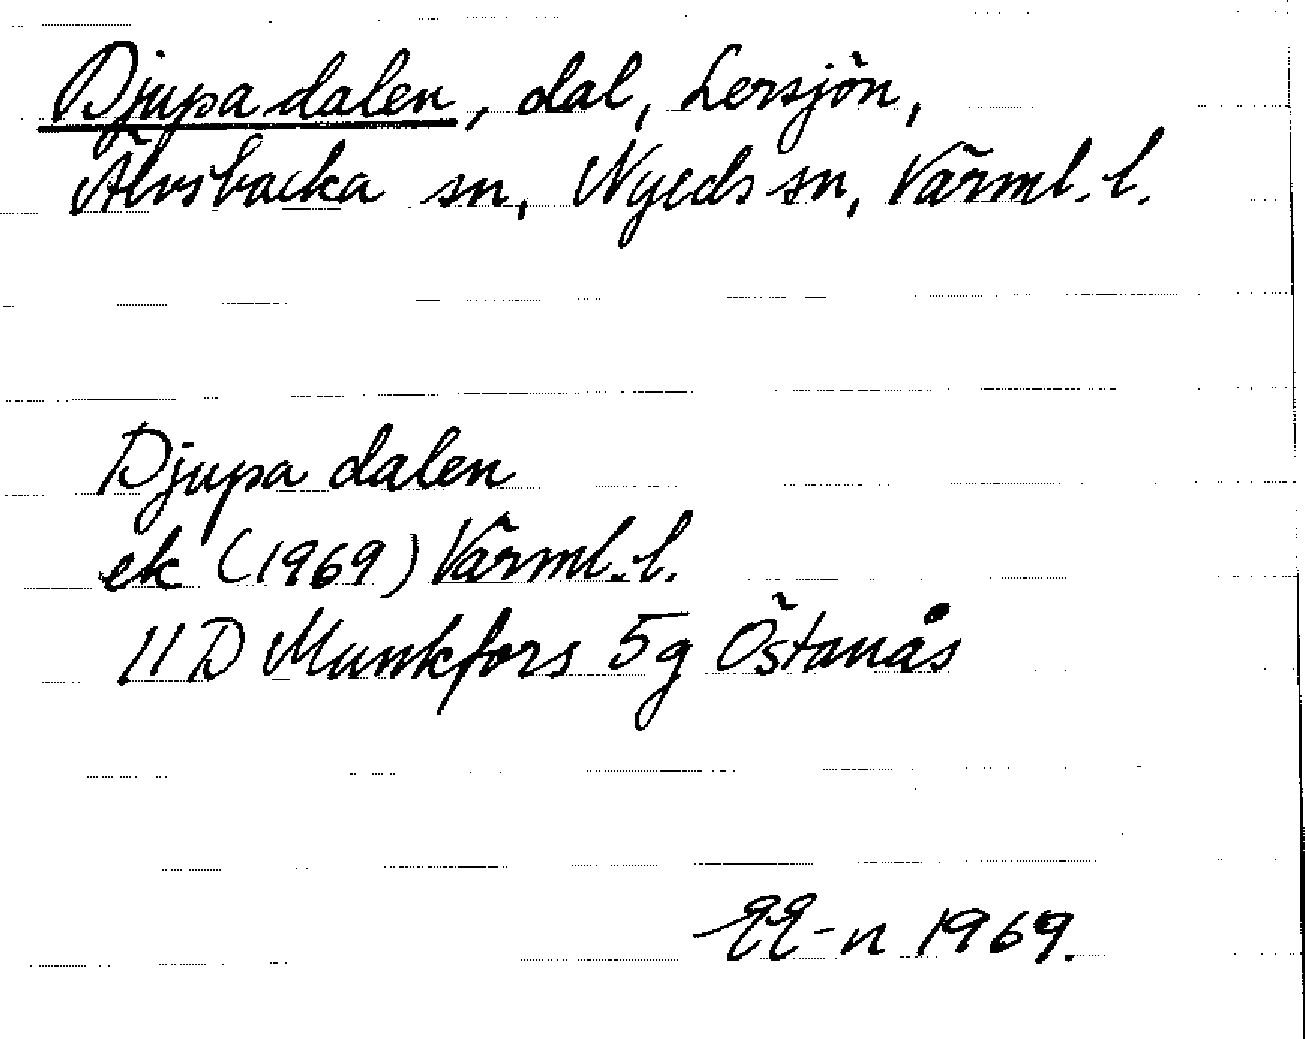 Djupa dalen, dal, Lersjön,
Älvsbacka sn, Nyeds sn, Värml. l.
Djupa dalen
ek (1969) Värml. l.
11 D Munkfors 5g Östanås
-n 1969.